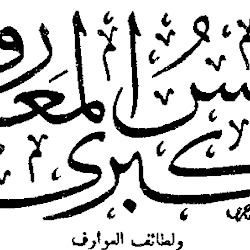 س المعارف
كبرى
ولطائف العوارف